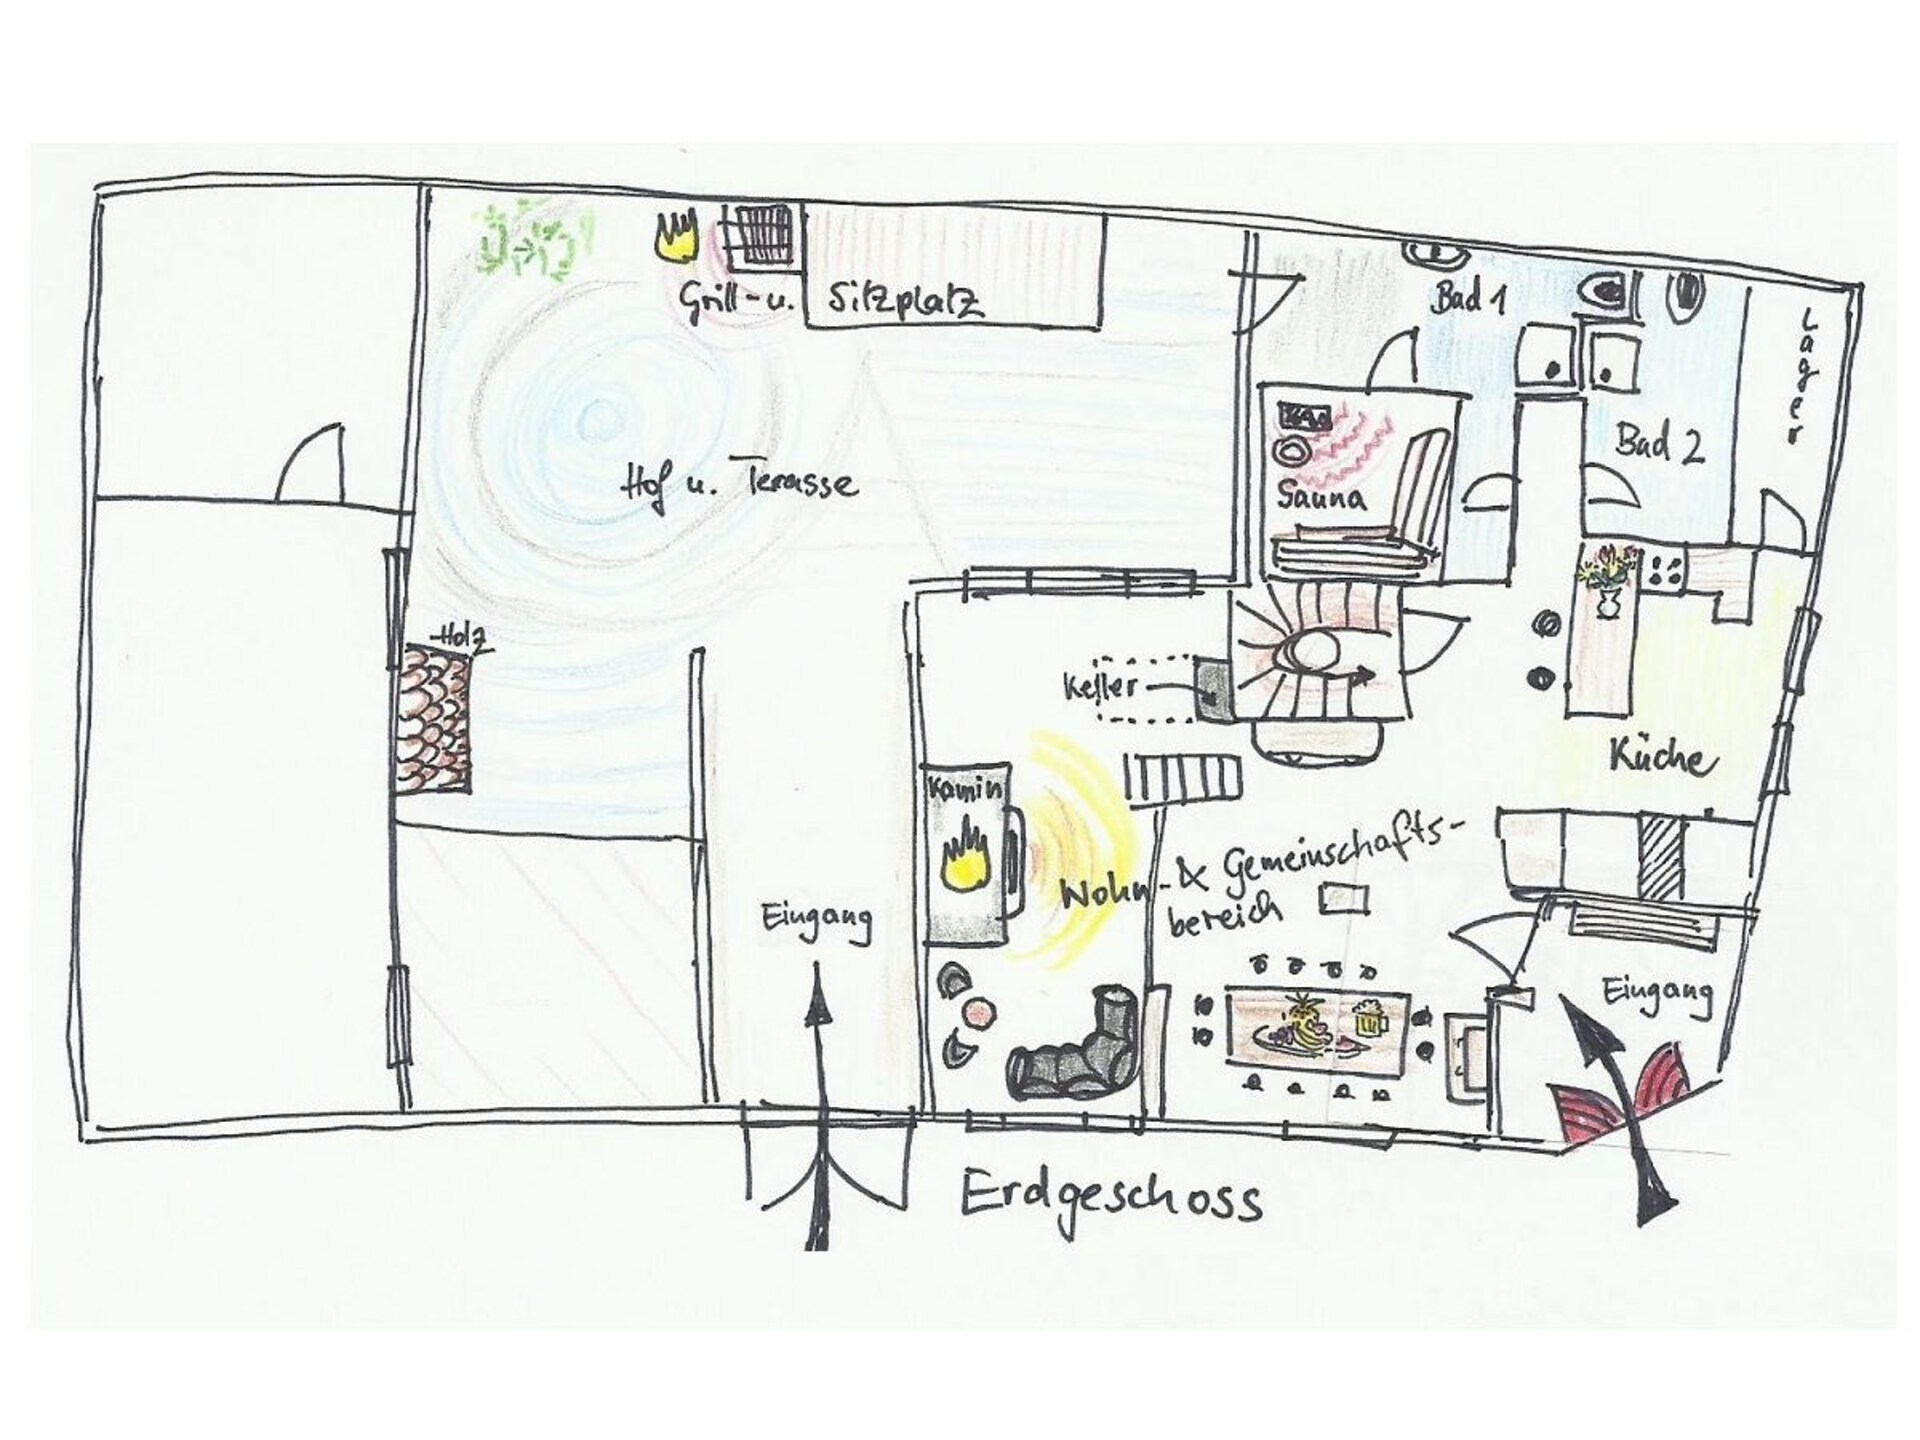 Grill- u. Sitzplatz
Bad 1
Lager
Hof u. Terasse
Sauna
Bad 2
Holz
Keller
Küche
Kamin
Wohn- & Gemeinschafts-
bereich
Eingang
Eingang
Erdgeschoss